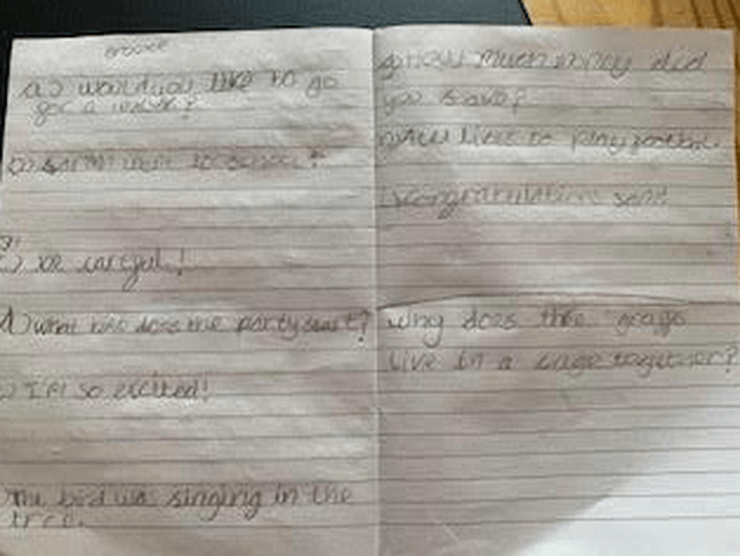 a) would you like to go
for a walk?
to school?
Be careful!
d) what time does the party start?
e) I'm so excited!
The bird was singing in the
tree.
g) How much money did
you save?
likes to play football.
i) congratulations
why does the
live in a cage together?